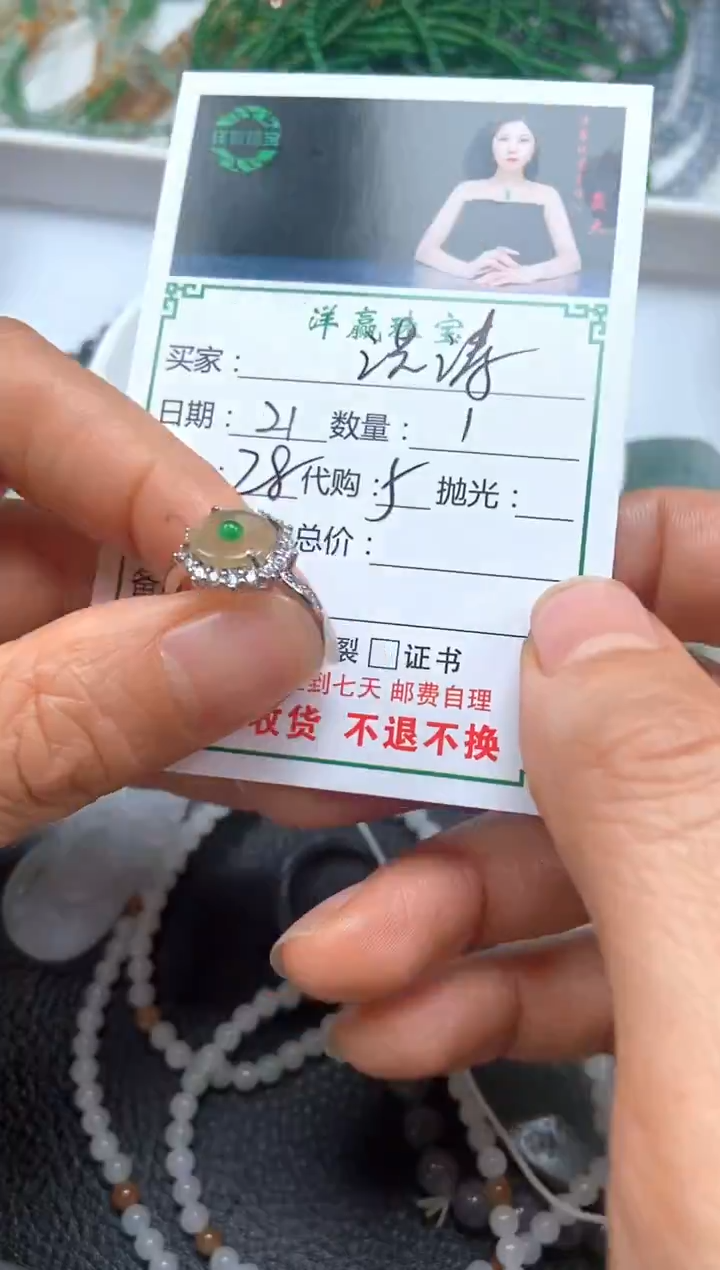 洋赢珠宝
洋赢珠宝
买家：洪涛
日期：21 数量：1
：28 代购：5 抛光：
总价：
备
裂 □证书
到七天 邮费自理
收货 不退不换